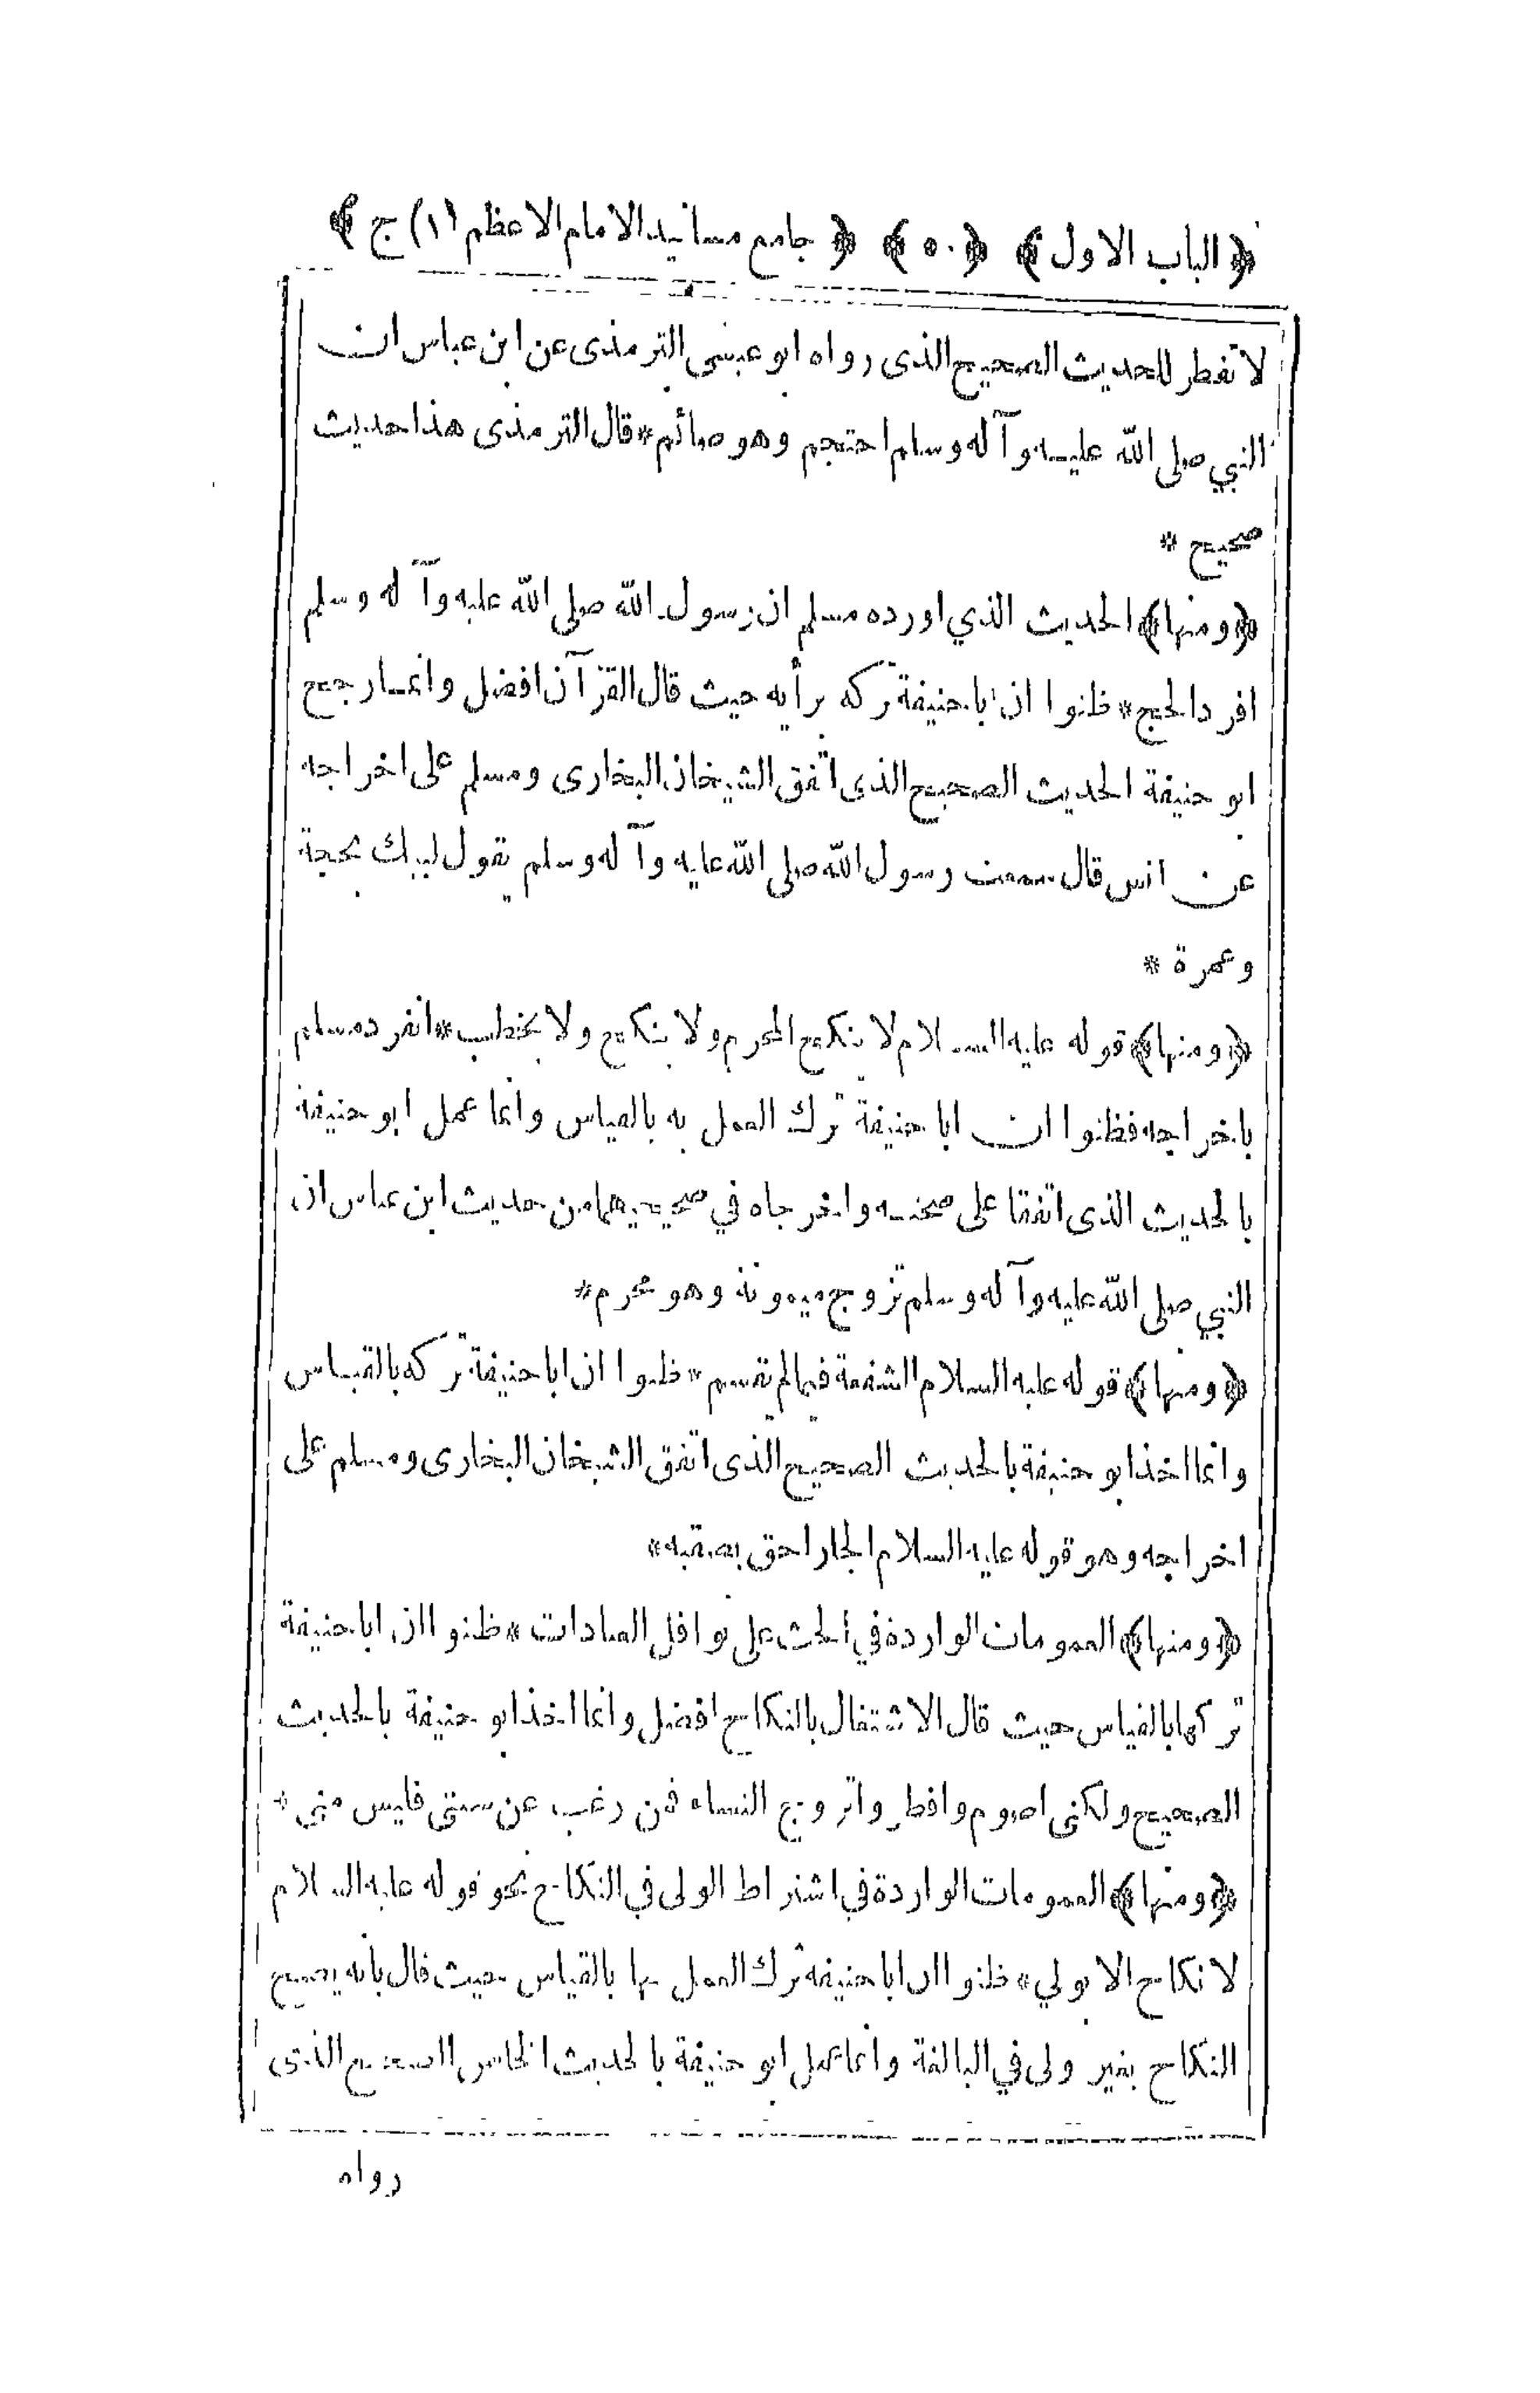 ﴿ الباب الاول ﴾ ﴿ ٥٠ ﴾ ﴿ جامع مسانيد الامام الاعظم (١) ج ﴾
لا تفطر للحديث الصحيح الذى رواه ابو عيسى الترمذى عن ابن عباس ان
النبي صلى الله عليه وآله وسلم احتجم وهو صائم * قال الترمذى هذا حديث
صحيح *
﴿ ومنها ﴾ الحديث الذي اورده مسلم ان رسول الله صلى الله عليه وآله وسلم
افرد الحج * ظنوا ان ابا حنيفة تركه برأيه حيث قال القرآن افضل وانما رجح
ابو حنيفة الحديث الصحيح الذى اتفق الشيخان البخارى ومسلم على اخراجه
عن انس قال سمعت رسول الله صلى الله عليه وآله وسلم يقول لبيك بحجة
وعمرة *
﴿ ومنها ﴾ قوله عليه السلام لا ينكح المحرم ولا ينكح ولا يخطب * انفرد مسلم
باخراجه فظنوا ان ابا حنيفة ترك العمل به بالقياس وانما عمل ابو حنيفة
بالحديث الذى اتفقا على صحته واخرجاه في صحيحيهما من حديث ابن عباس ان
النبي صلى الله عليه وآله وسلم تزوج ميمونة وهو محرم *
﴿ ومنها ﴾ قوله عليه السلام الشفعة فيما لم تقسم * ظنوا ان ابا حنيفة تركه بالقياس
وانما اخذ ابو حنيفة بالحديث الصحيح الذى اتفق الشيخان البخارى ومسلم على
اخراجه وهو قوله عليه السلام الجار احق بصقبه *
﴿ ومنها ﴾ العمومات الواردة في الحث على نوافل العبادات * ظنوا ان ابا حنيفة
تركها بالقياس حيث قال الاشتغال بالنكاح افضل وانما اخذ ابو حنيفة بالحديث
الصحيح ولكنى اصوم وافطر واتزوج النساء فمن رغب عن سنتى فليس منى *
﴿ ومنها ﴾ العمومات الواردة في اشتراط الولى في النكاح نحو قوله عليه السلام
لا نكاح الا بولي * ظنوا ان ابا حنيفة ترك العمل بها بالقياس حيث قال بأنه يصح
النكاح بغير ولى في البالغة وانما عمل ابو حنيفة بالحديث الخاص الصحيح الذى
رواه